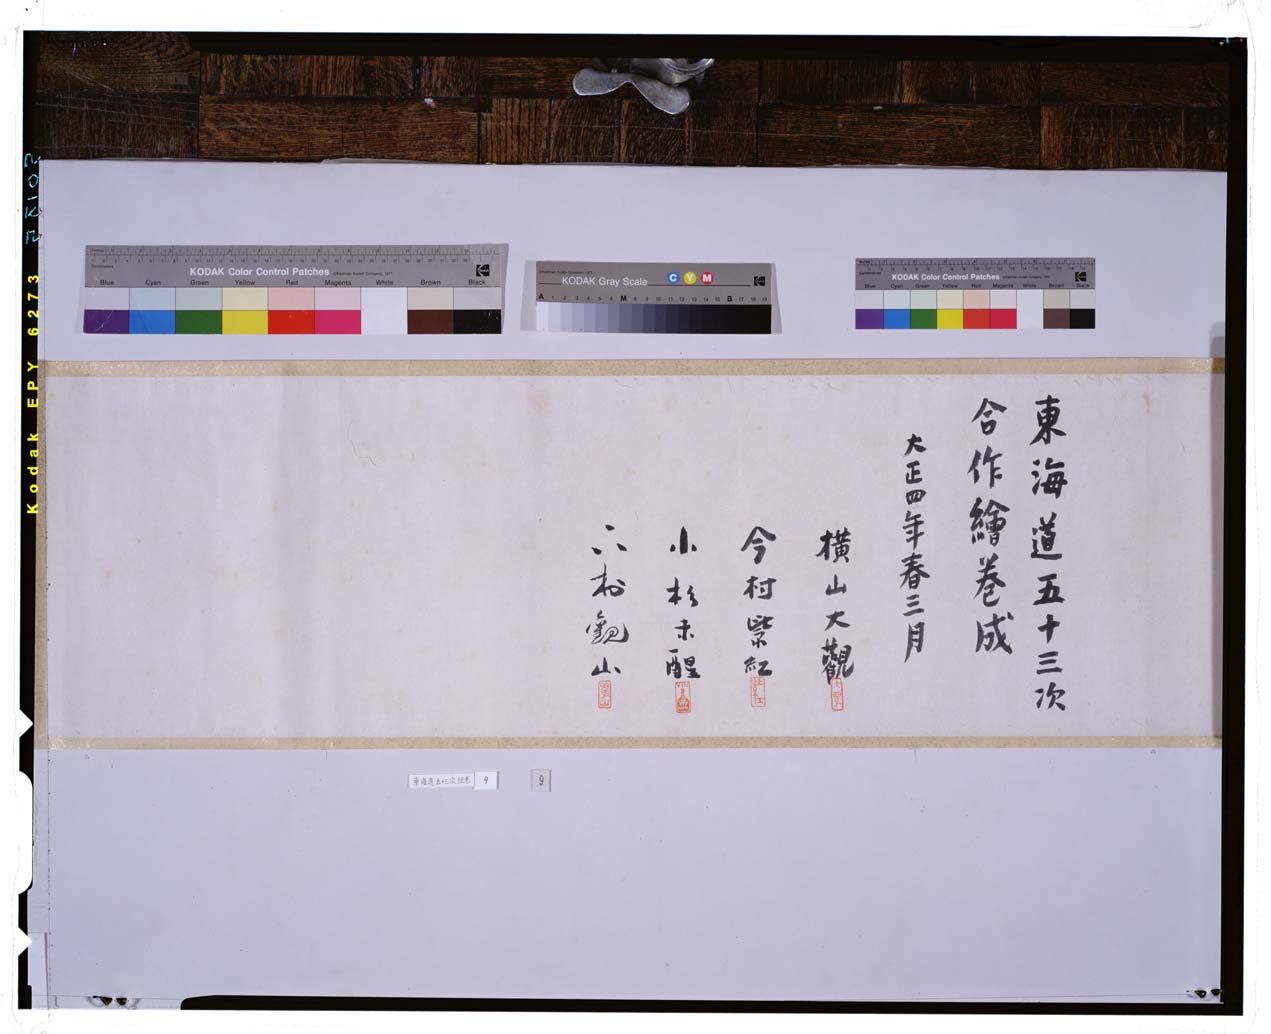 KODAK Color Control Patches
Blue Cyan Green Yellow Red Magenta White Brown Black
KODAK Gray Scale
C Y M
A 1 2 3 4 5 6 M 8 9 10 11 12 13 14 15 B 17 18 19
KODAK Color Control Patches
Blue Cyan Green Yellow Red Magenta White Brown Black
東海道五十三次
合作繪巻成
大正四年春三月
横山大觀
今村紫紅
小杉未醒
下村観山
9
9
Kodak EPY 6273